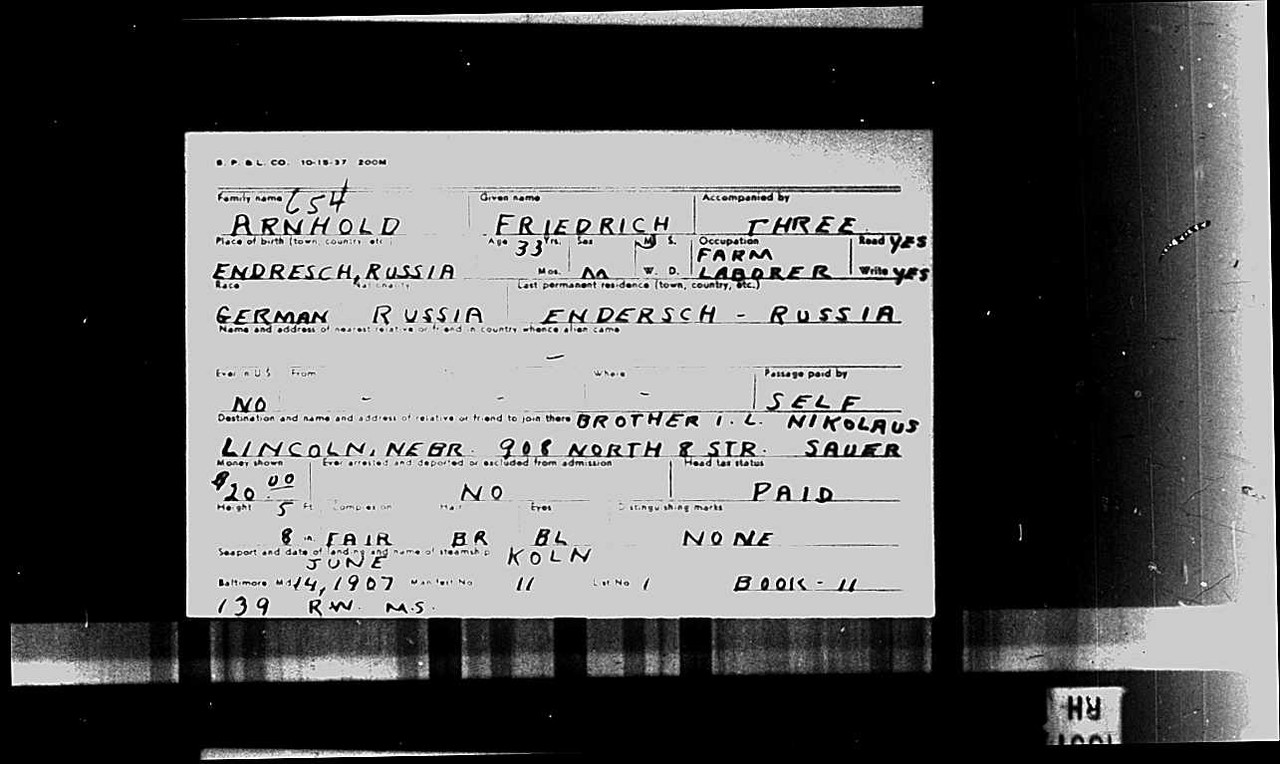 S. P. & L. CO. 10-15-37 200M
Family name 654 Given name Accompanied by
ARNHOLD FRIEDRICH THREE
Place of birth (town, country etc.) Age 33 Yrs. Sex M S. Occupation Read YES
FARM
ENDRESCH, RUSSIA Mos. M W. D. LABORER Write YES
Race Nationality Last permanent residence (town, country, etc.)
GERMAN RUSSIA ENDERSCH - RUSSIA
Name and address of nearest relative or friend in country whence alien came
-
Ever in U.S. From To Where Passage paid by
NO - - - SELF
Destination and name and address of relative or friend to join there BROTHER I. L. NIKOLAUS
LINCOLN, NEBR. 908 NORTH 8 STR. SAUER
Money shown Ever arrested and deported or excluded from admission Head tax status
$20.00 NO PAID
Height 5 Ft. Complexion Hair Eyes Distinguishing marks
8 in. FAIR BR BL NONE
Seaport and date of landing and name of steamship KOLN
JUNE
Baltimore, Md. 14, 1907 Manifest No. 11 List No. 1 BOOK - 11
139 R.W. M.S.
RH